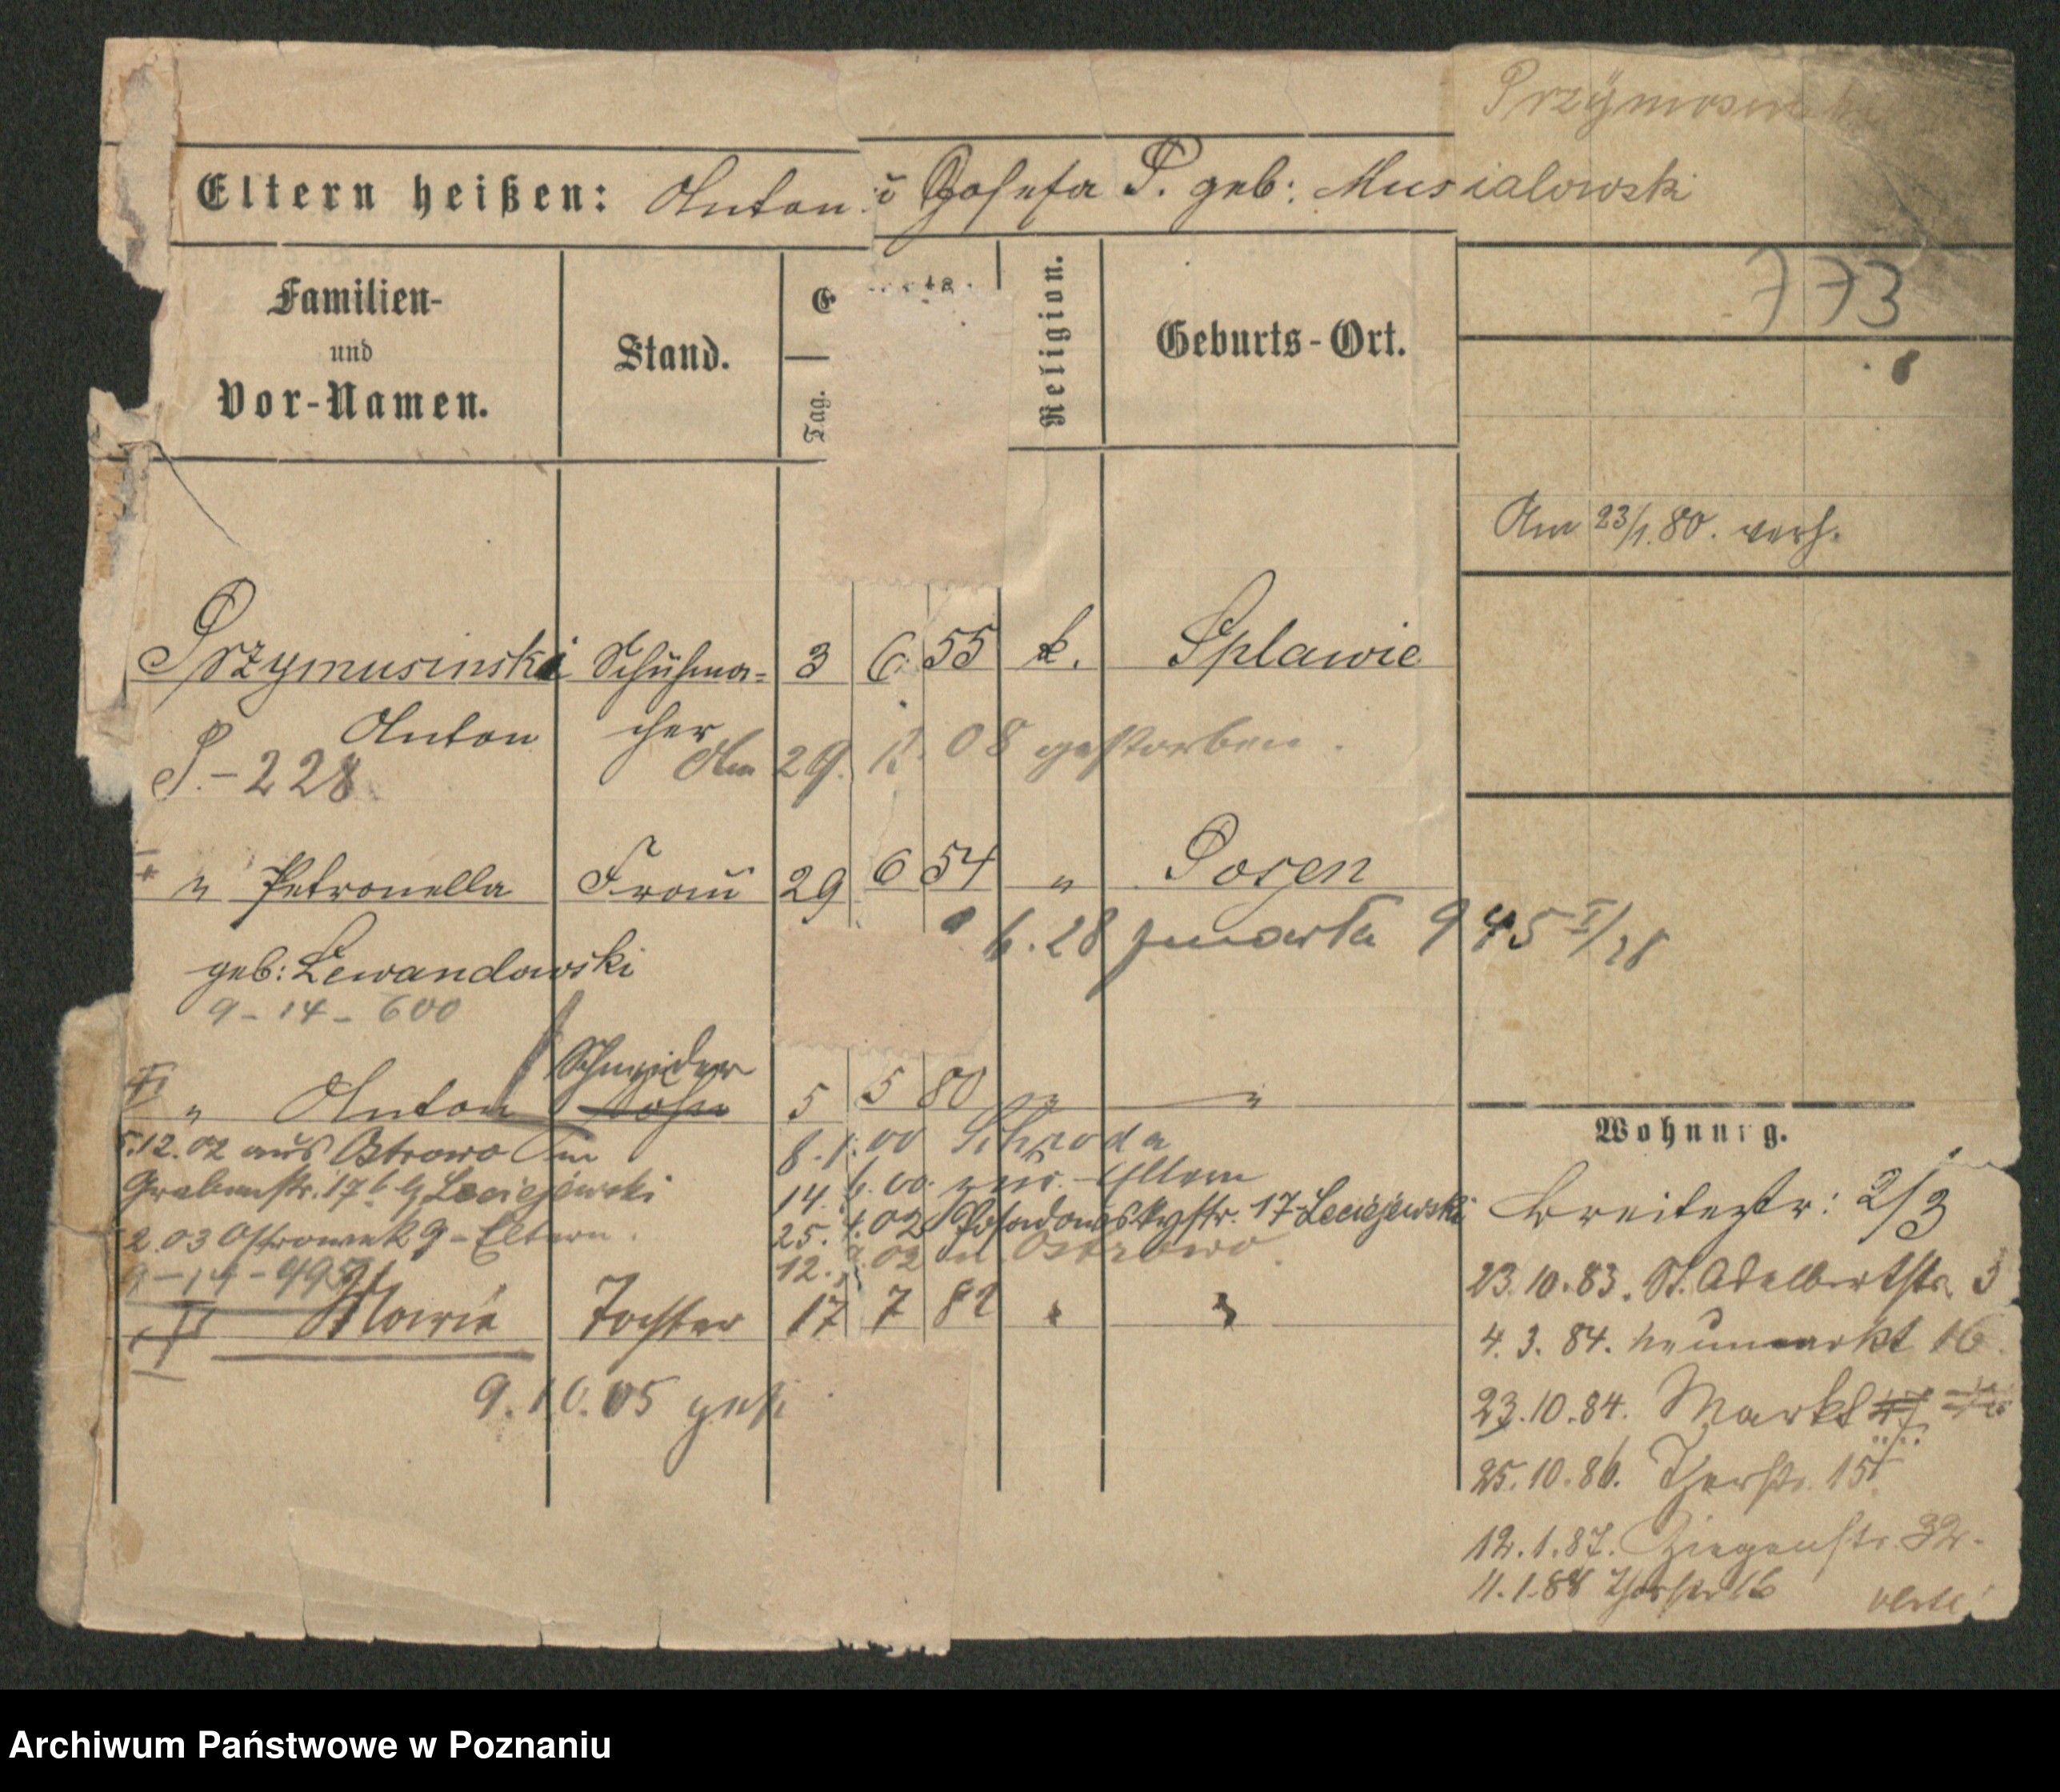 Eltern heißen: Anton u Josefa P. geb: Musialowski
773
Familien-
und
Vor-Namen.
Stand.
Tag.
Religion.
Geburts-Ort.
Am 23/1.80. verh.
Przymusinski Schuhma- 3 6 55 k. Splawie
Anton cher
P.-228
Am 29. 08 gestorben.
" Petronella Frau 29 6 54 " Posen
geb: Lewandowski
6.28 zmarła 945 I/28
9-14-600
Schneider
" Anton Sohn 5 5 80 " "
5.12.02 aus Ostrowo
8.1.00 Schroda
Grabenstr. 17 Leciejewski
14.6.00. zur. Eltern
25. 02 17 Leciejewski
2.03 Ostrowek 9 - Eltern.
12. 02 n. Ostrowo
Maria Tochter 17 7 82 " "
9.10.05 gest
Wohnung.
Breitestr: 2/3
23.10.83. St. Adalbertstr. 3
4.3.84. Neumarkt 16.
23.10.84. Markt
25.10.86. 15.
12.1.87. Ziegenstr. 32.
11.1.88 16
Archiwum Państwowe w Poznaniu